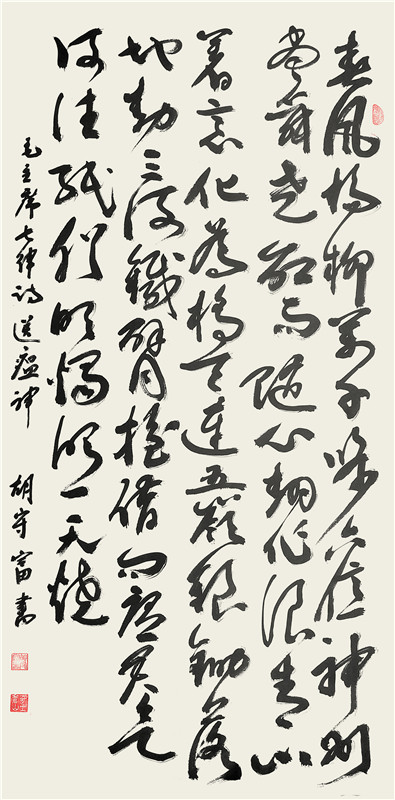 春風楊柳萬千條六億神州
盡舜堯紅雨隨心翻作浪青山
着意化為橋天連五嶺銀鋤落
地動三河鐵臂搖借問瘟君欲
何往紙船明燭照天燒
毛主席七律詩送瘟神 胡守富書